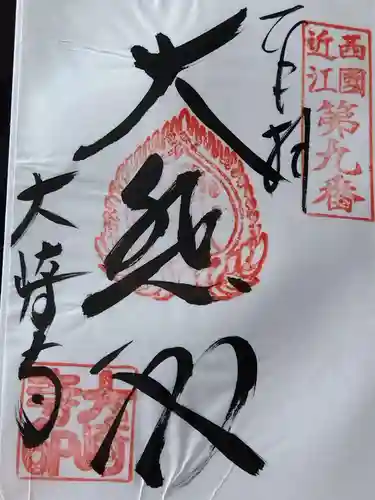 近江西國
第九番
奉拝
大悲殿
大崎寺
大崎寺印